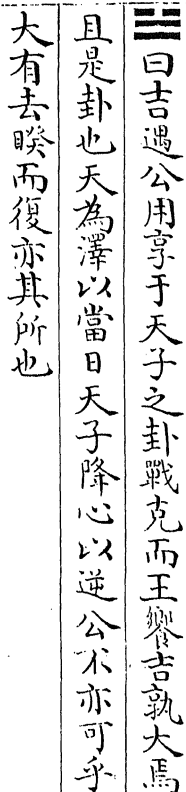 ☱曰吉遇公用享于天子之卦戰克而王饗吉孰大焉
且是卦也天為澤以當日天子降心以逆公不亦可乎
大有去睽而復亦其所也